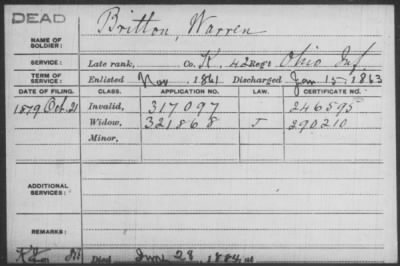 DEAD
Britton, Warren
NAME OF SOLDIER:
SERVICE: Late rank, Co. K, 42 Reg't Ohio Inf.
TERM OF SERVICE: Enlisted Nov. 1861 Discharged Jan 15, 1863
DATE OF FILING. CLASS. APPLICATION NO. LAW. CERTIFICATE NO.
1879 Oct. 21 Invalid, 317097 246595
Widow, 321868 J 290210
Minor,
ADDITIONAL SERVICES:
REMARKS:
Died June 28, 1884, at